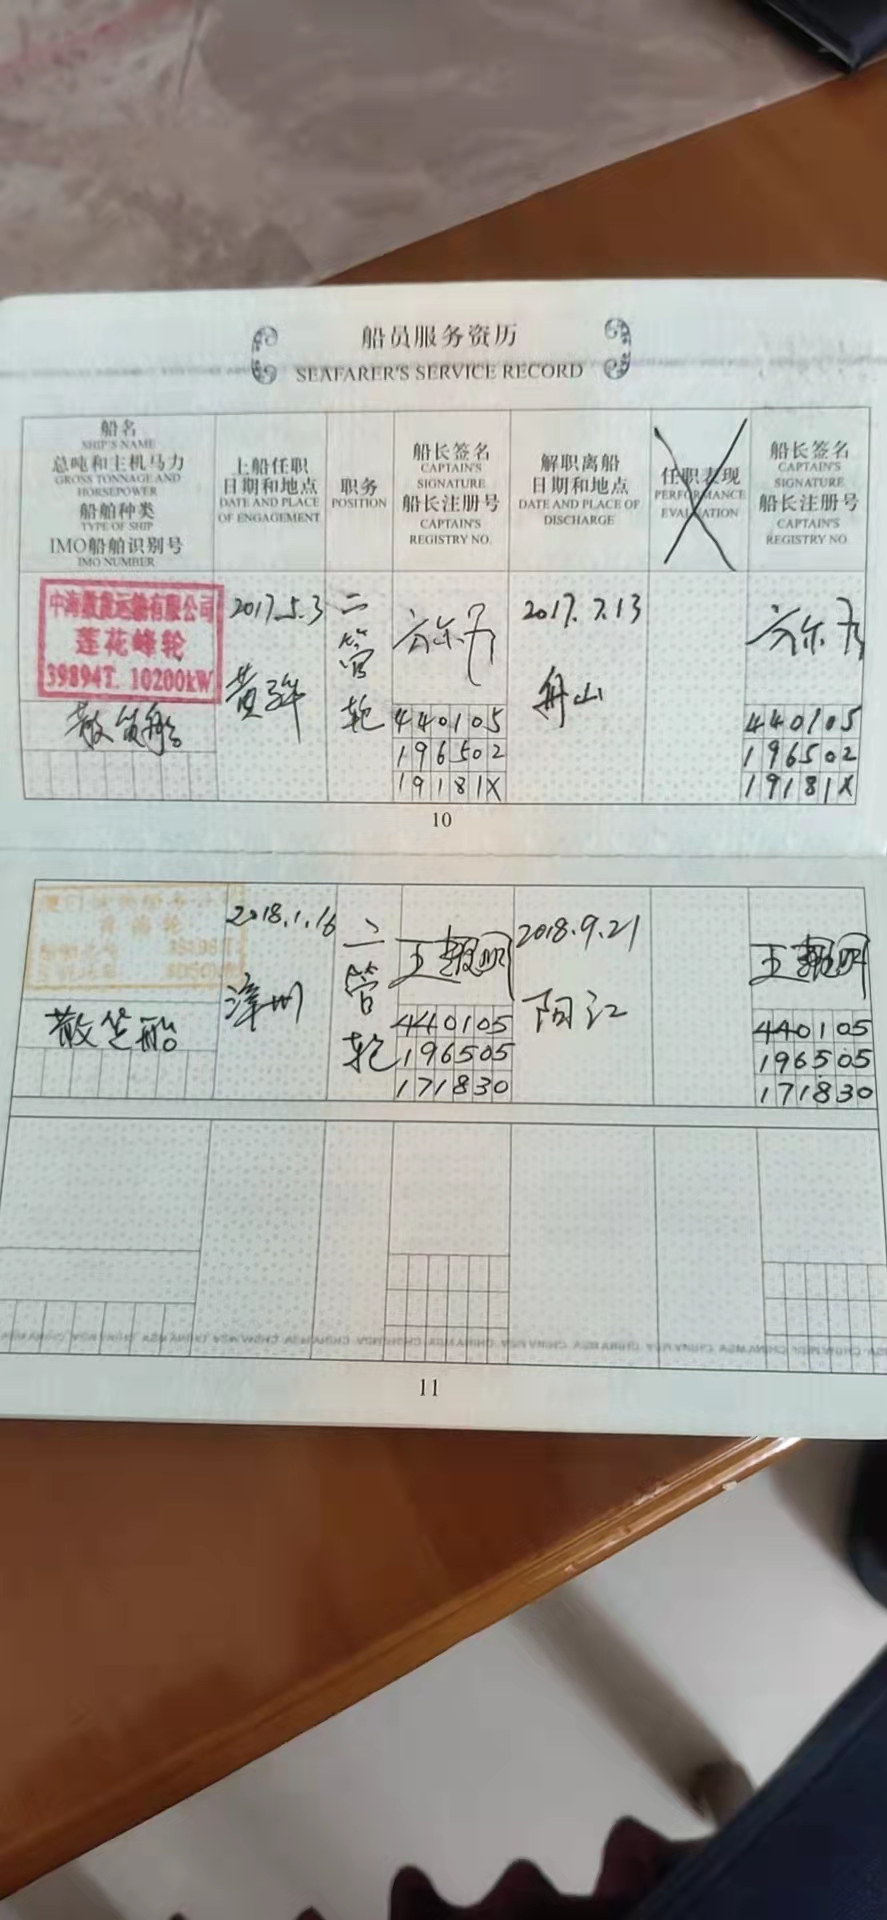 船员服务资历
SEAFARER'S SERVICE RECORD
船名
SHIP'S NAME
总吨和主机马力
GROSS TONNAGE AND
HORSEPOWER
船舶种类
TYPE OF SHIP
IMO船舶识别号
IMO NUMBER
上船任职
日期和地点
DATE AND PLACE
OF ENGAGEMENT
职务
POSITION
船长签名
CAPTAIN'S
SIGNATURE
船长注册号
CAPTAIN'S
REGISTRY NO.
解职离船
日期和地点
DATE AND PLACE OF
DISCHARGE
任职表现
PERFORMANCE
EVALUATION
船长签名
CAPTAIN'S
SIGNATURE
船长注册号
CAPTAIN'S
REGISTRY NO.
中海散货运输有限公司
莲花峰轮
39894T. 10200kW
散货船
2017.5.3
黄骅
二管轮
440105
196502
19181X
2017.7.13
舟山
440105
196502
19181X
10
散货船
2018.1.16
漳州
二管轮
440105
196505
171830
2018.9.21
阳江
440105
196505
171830
11